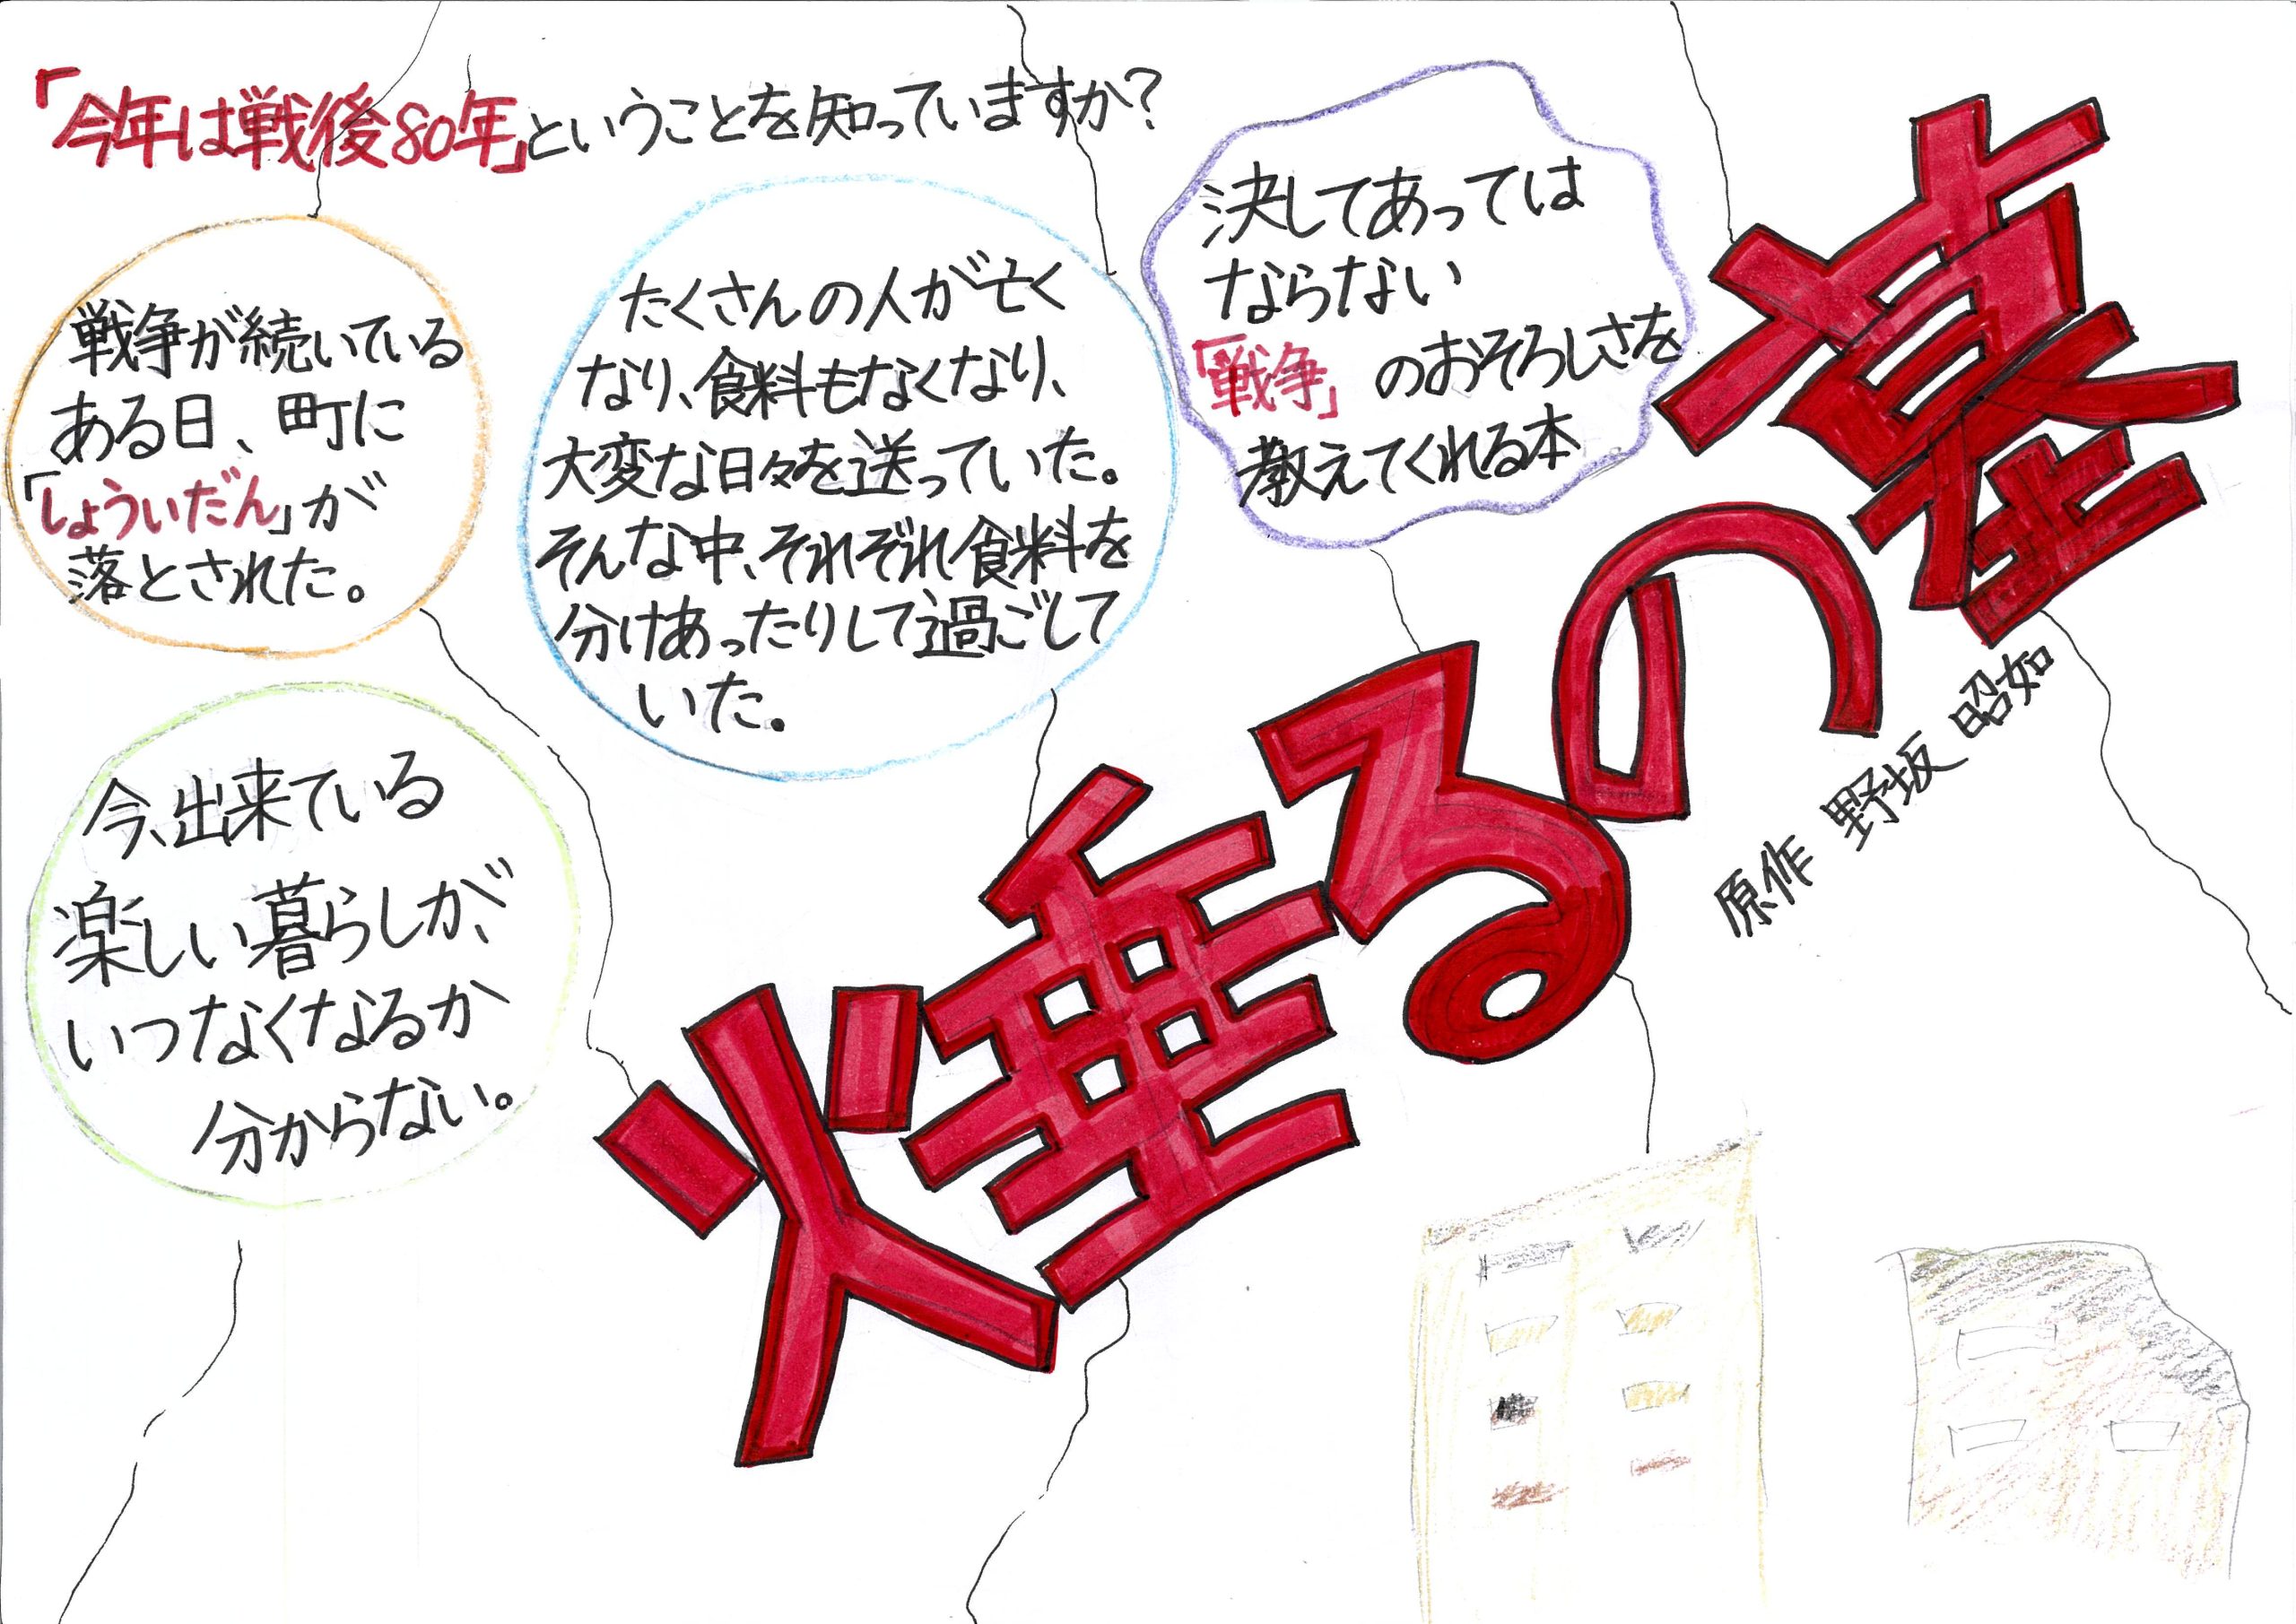 「今年は戦後80年」ということを知っていますか?
戦争が続いている
ある日、町に
「しょういだん」が
落とされた。
たくさんの人が亡く
なり、食料もなくなり、
大変な日々を送っていた。
そんな中、それぞれ食料を
分けあったりして過ごして
いた。
決してあっては
ならない
「戦争」のおそろしさを
教えてくれる本
今、出来ている
楽しい暮らしが、
いつなくなるか
分からない。
火垂るの墓
原作 野坂 昭如